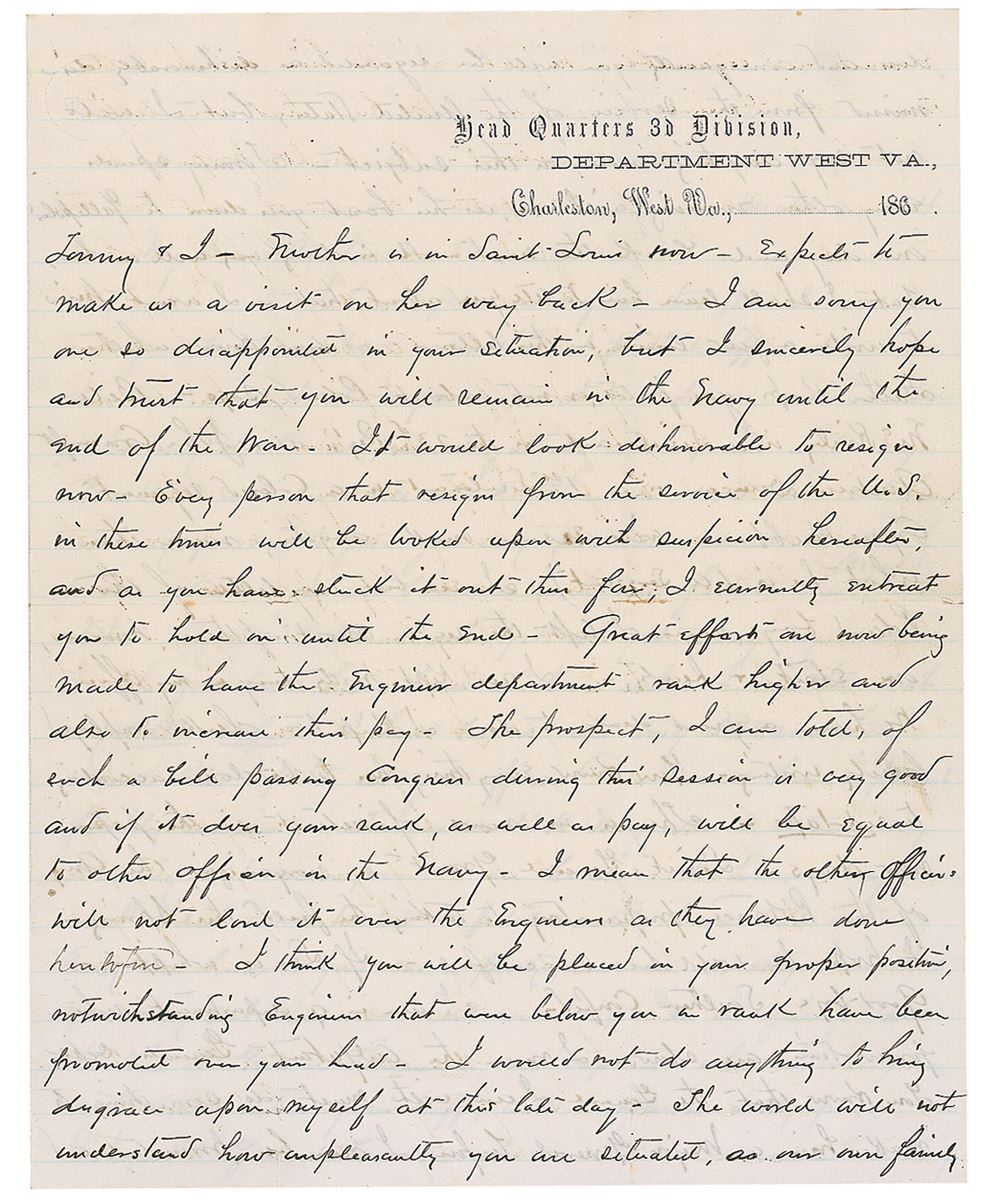 Head Quarters 3d Division,
DEPARTMENT WEST VA.,
Charleston, West Va., 186 .
& I — Mother is in Saint Louis now — Expects to
make us a visit on her way back — I am sorry you
are so disappointed in your situation, but I sincerely hope
and trust that you will remain in the Navy until the
end of the War — It would look dishonorable to resign
now — Every person that resigns from the service of the U.S.
in these times will be looked upon with suspicion hereafter,
and as you have stuck it out thus far, I earnestly entreat
you to hold on until the end — Great efforts are now being
made to have the Engineer department rank higher and
also to increase their pay — The prospect, I am told, of
such a bill passing Congress during this session is very good
and if it does your rank, as well as pay, will be equal
to other officers in the Navy — I mean that the other officers
will not lord it over the Engineers as they have done
heretofore — I think you will be placed in your proper position,
notwithstanding Engineers that were below you in rank have been
promoted over your head — I would not do anything to bring
disgrace upon myself at this late day — The world will not
understand how unpleasantly you are situated, as our own family